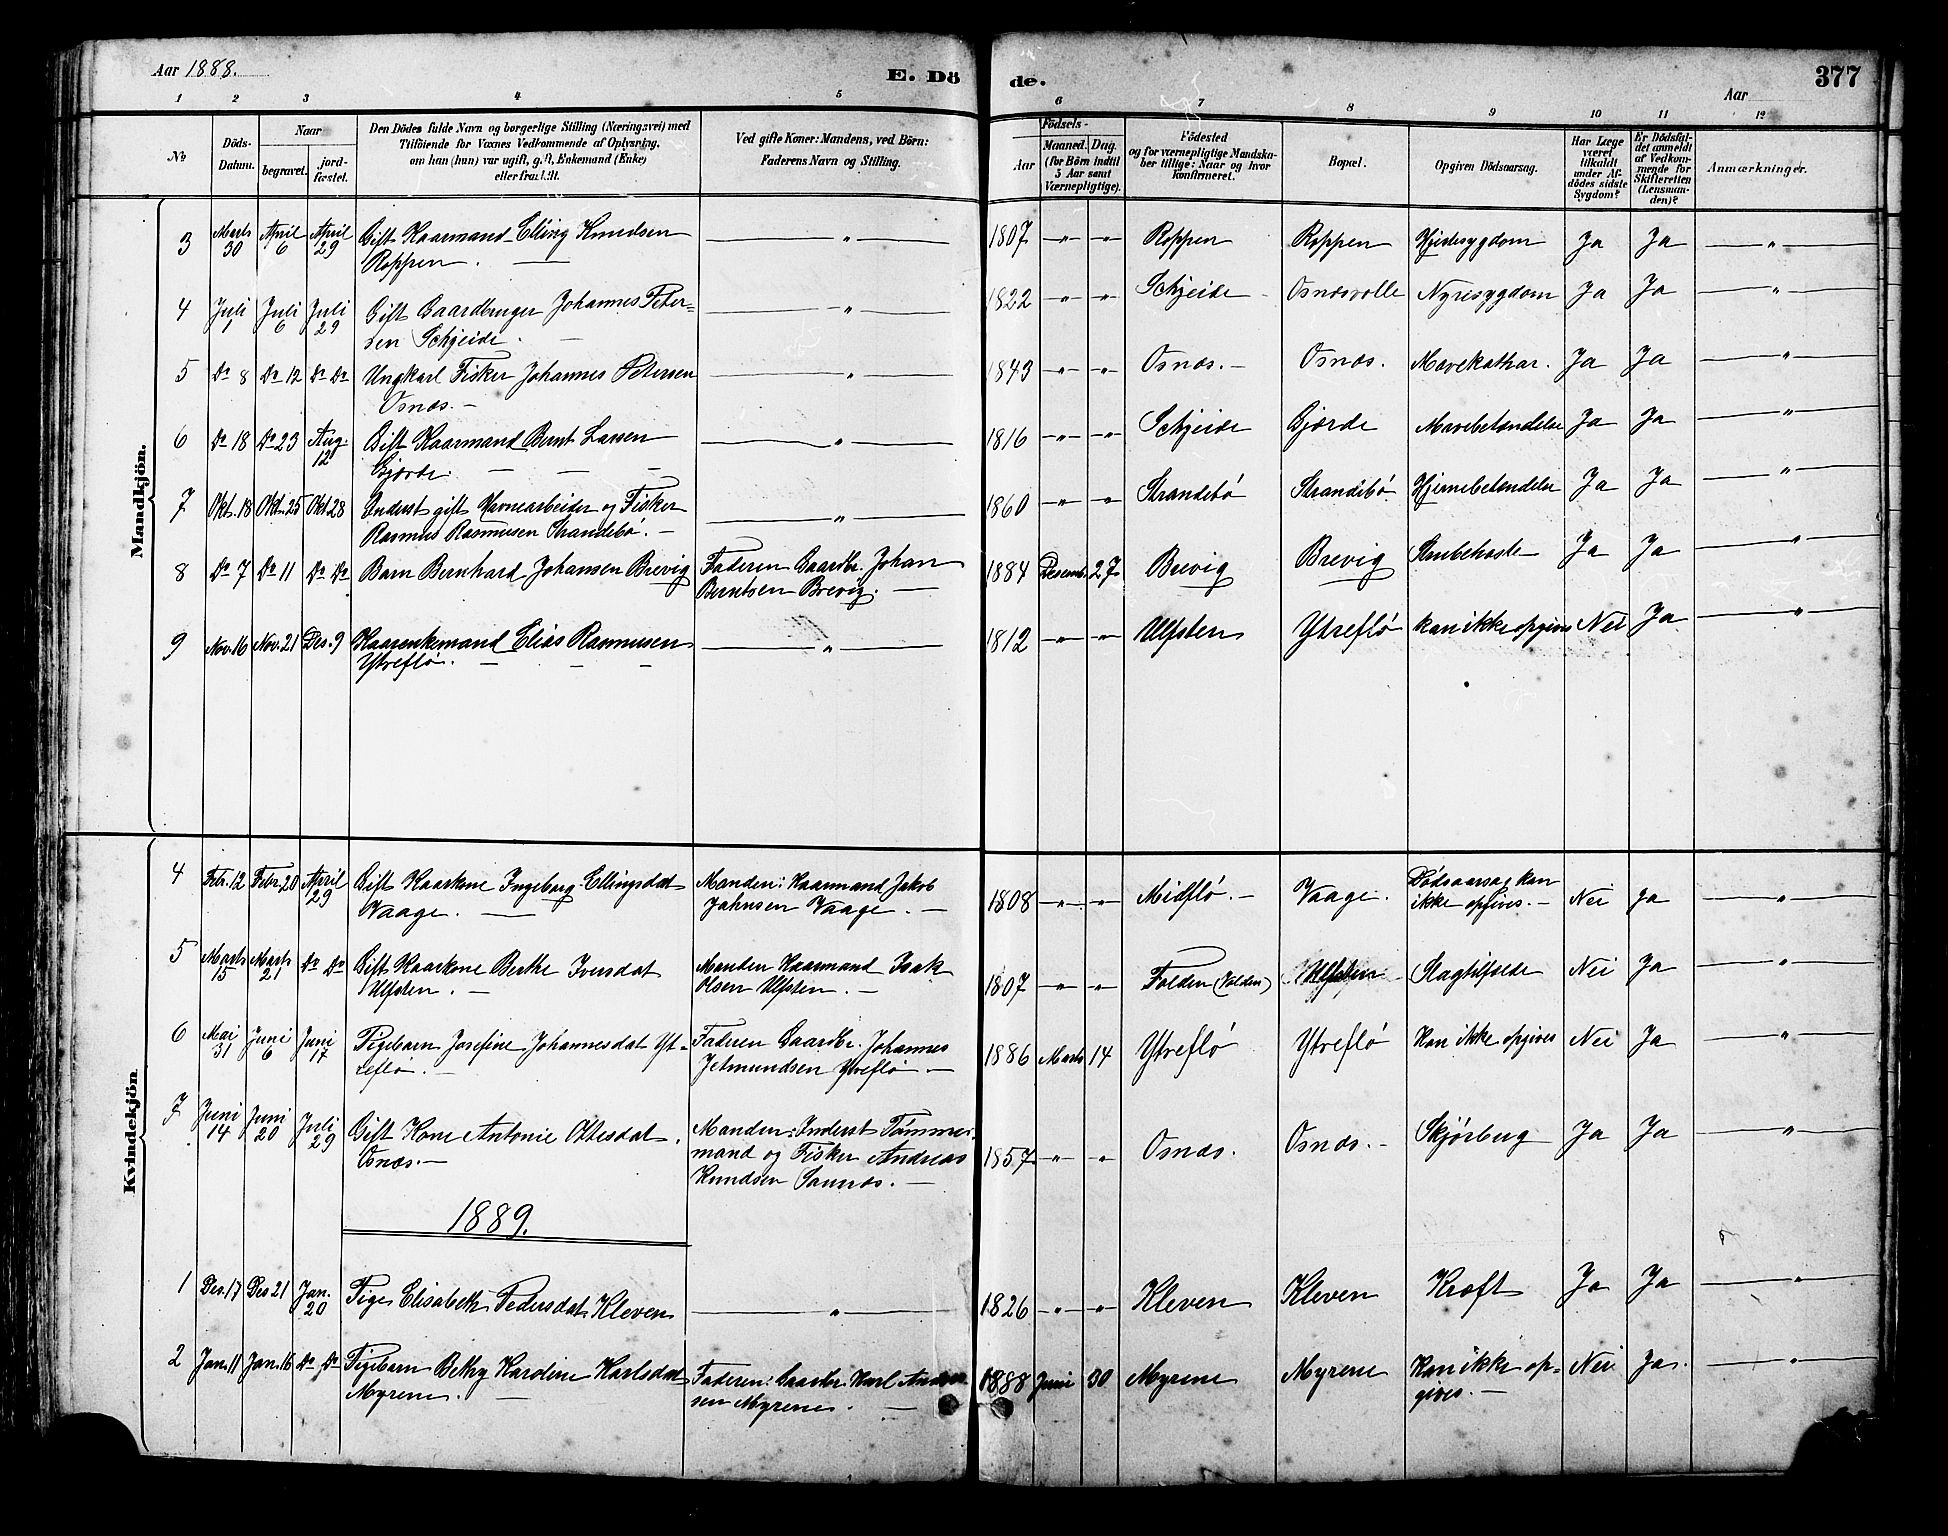 Aar 1888.
E. Dö
de.
Aar
377
1 2 3 4 5 6 7 8 9 10 11 12
No
Döds-
Datum.
Naar
begravet.
jord-
fæstet.
Den Dödes fulde Navn og borgerlige Stilling (Næringsvei) med
Tilföiende for Voxnes Vedkommende af Oplysning,
om han (hun) var ugift, gift, Enkemand (Enke)
eller fraskilt.
Ved gifte Koner: Mandens, ved Börn:
Faderens Navn og Stilling.
Födsels-
Aar
Maaned. Dag.
(for Börn indtil
5 Aar samt
Værnepligtige).
Födested
og for værnepligtige Mandska-
ber tillige: Naar og hvor
konfirmeret.
Bopæl.
Opgiven Dödsaarsag.
Har Læge
været
tilkaldt
under Af-
dödes sidste
Sygdom?
Er Dödsfal-
det anmeldt
af Vedkom-
mende for
Skifteretten
(Lensman-
den)?
Anmærkninger.
Mandkjön.
3 Marts 30 April 6 April 29 Gift Kaarmand Elling Knudsen
Roppen. — " — 1807 " " Roppen Roppen Hjertesygdom Ja Ja "
4 Juli 1 Juli 6 Juli 29 Gift Gaardbruger Johannes Peter-
sen Schjeide. — " — 1822 " " Schjeide Osnesvolle Nyresygdom Ja Ja "
5 Do 8 Do 12 Do Do Ungkarl Fisker Johannes Petersen
Osnæs. — " — 1843 " " Osnæs. Osnæs. Mavekathar. Ja Ja "
6 Do 18 Do 23 Aug. 12 Gift Kaarmand Bernt Larsen
Gjærde. — " — 1816 " " Schjeide Gjærde Mavebetændelse Ja Ja "
7 Okt. 18 Okt. 25 Okt 28 Inderst gift Havnearbeider og Fisker
Rasmus Rasmusen Strandebö. — " — 1860 " " Strandebö Strandebö Hjernebetændelse Ja Ja "
8 Do 7 Do 11 Do Do Barn Bernhard Johansen Brevig Faderen Gaardbr. Johan
Berntsen Brevig. — 1884 Desemb. 27 Brevig Brevig Strubehoste Ja Ja "
9 Nov. 16 Nov. 21 Des. 9 Kaarenkemand Elias Rasmusen
Ytreflö. — " — 1812 " " Ulfsten Ytreflö kan ikke opgives Nei Ja "
Kvindekjön
4 Febr. 12 Febr. 20 April 29 Gift Kaarkone Ingeborg Ellingsdat
Vaage. — Manden: Kaarmand Jakob
Jahnsen Vaage. — 1808 " " Midflö. Vaage. Dödsaarsag kan
ikke opgives. — Nei Ja "
5 Marts 15 Marts 21 Do Do Gift Kaarkone Berthe Iversdat
Ulfsten. — Manden Kaarmand Isak
Olsen Ulfsten. — 1807 " " Folden (Volden) Ulfsten Slagtilfælde Nei Ja "
6 Mai 31 Juni 6 Juni 17 Pigebarn Josefine Johannesdat Yt-
reflö. — Faderen Gaardbr. Johannes
Jetmundsen Ytreflö — 1886 Marts 14 Ytreflö Ytreflö Kan ikke opgives Nei Ja "
7 Juni 14 Juni 20 Juli 29 Gift Kone Antonie Ottesdat.
Osnæs. — Manden: Inderst Tömmer-
mand og Fisker Andreas
Knudsen Osnæs. — 1857 " " Osnæs. Osnæs. Skjörbug Ja Ja "
1889.
1 Des. 17 Des 21 Jan. 20 Pige Elisabeth Pedersdat. Kleven — " — 1826 " " Kleven Kleven Kræft Ja Ja "
2 Jan. 11 Jan. 16 Do Do Pigebarn Bethy Karoline Karlsdat
Myrene. — Faderen: Gaardbr. Karl Ander-
sen Myrene. — 1888 Juni 30 Myrene Myrene Kan ikke op-
gives. — Nei Ja. "